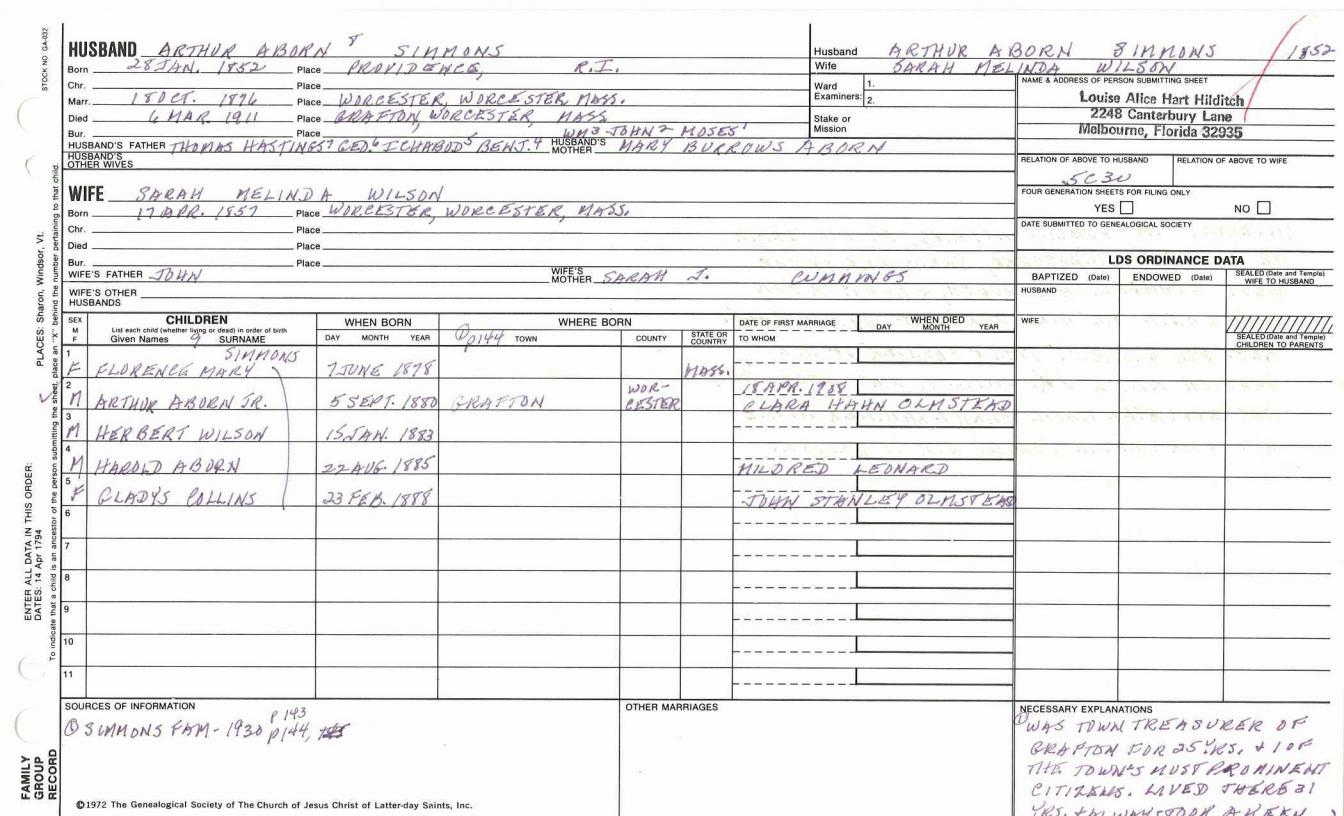 STOCK NO. GA-032
HUSBAND ARTHUR ABORN 8 SIMMONS
Born 28 JAN. 1852 Place PROVIDENCE, R.I.
Chr. Place
Marr. 18 OCT. 1876 Place WORCESTER, WORCESTER MASS.
Died 6 MAR. 1911 Place GRAFTON, WORCESTER, MASS
Bur. Place WM 3 JOHN 2 MOSES 1
HUSBAND'S FATHER THOMAS HASTINGS 7 GED. 6 ICHABOD 5 BENJ. 4 HUSBAND'S MOTHER MARY BURROWS ABORN
HUSBAND'S OTHER WIVES
WIFE SARAH MELINDA WILSON
Born 17 APR. 1857 Place WORCESTER, WORCESTER, MASS.
Chr. Place
Died Place
Bur. Place
WIFE'S FATHER JOHN WIFE'S MOTHER SARAH J. CUMMINGS
WIFE'S OTHER HUSBANDS
Husband ARTHUR ABORN SIMMONS 1852
Wife SARAH MELINDA WILSON
Ward Examiners: 1.
2.
Stake or Mission
NAME & ADDRESS OF PERSON SUBMITTING SHEET
Louise Alice Hart Hilditch
2248 Canterbury Lane
Melbourne, Florida 32935
RELATION OF ABOVE TO HUSBAND RELATION OF ABOVE TO WIFE
5C3U
FOUR GENERATION SHEETS FOR FILING ONLY
YES NO
DATE SUBMITTED TO GENEALOGICAL SOCIETY
LDS ORDINANCE DATA
BAPTIZED (Date) ENDOWED (Date) SEALED (Date and Temple) WIFE TO HUSBAND
HUSBAND
WIFE
SEALED (Date and Temple) CHILDREN TO PARENTS
SEX M F CHILDREN List each child (whether living or dead) in order of birth Given Names 9 SURNAME
WHEN BORN DAY MONTH YEAR
WHERE BORN p144 TOWN COUNTY STATE OR COUNTRY
DATE OF FIRST MARRIAGE TO WHOM
WHEN DIED DAY MONTH YEAR
SIMMONS
1 F FLORENCE MARY 7 JUNE 1878 MASS.
2 M ARTHUR ABORN JR. 5 SEPT. 1880 GRAFTON WOR-CESTER 18 APR. 1908 CLARA HAHN OLMSTEAD
3 M HERBERT WILSON 15 JAN. 1883
4 M HAROLD ABORN 22 AUG. 1885 MILDRED LEONARD
5 F GLADYS COLLINS 23 FEB. 1888 JOHN STANLEY OLMSTEAD
6
7
8
9
10
11
SOURCES OF INFORMATION
p 143
① SIMMONS FAM - 1930 p144,
OTHER MARRIAGES
NECESSARY EXPLANATIONS
① WAS TOWN TREASURER OF
GRAFTON FOR 25 YRS. + 1 OF
THE TOWN'S MOST PROMINENT
CITIZENS. LIVED THERE 31
YRS. + ALWAYS TOOK A KEEN
©1972 The Genealogical Society of The Church of Jesus Christ of Latter-day Saints, Inc.
ENTER ALL DATA IN THIS ORDER:
DATES: 14 Apr 1794
PLACES: Sharon, Windsor, Vt.
To indicate that a child is an ancestor of the person submitting the sheet, place an "X" behind the number pertaining to that child.
FAMILY
GROUP
RECORD